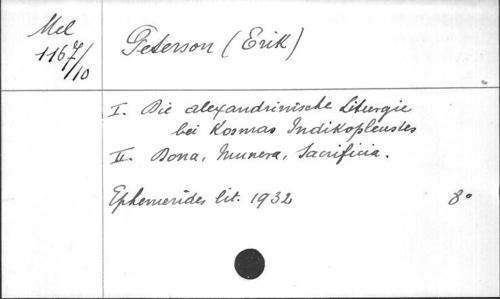 Mel
1167/10
Peterson (Erik)
I. Die alexandrinische Liturgie
bei Kosmas Indikopleustes
II. Dona, Munera, Sacrificia.
Ephemerides lit. 1932 8°